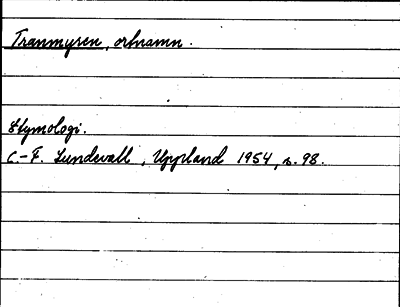 Tranmyren, ortnamn.
Etymologi.
C.-F. Lundevall, Uppland 1954, s. 98.